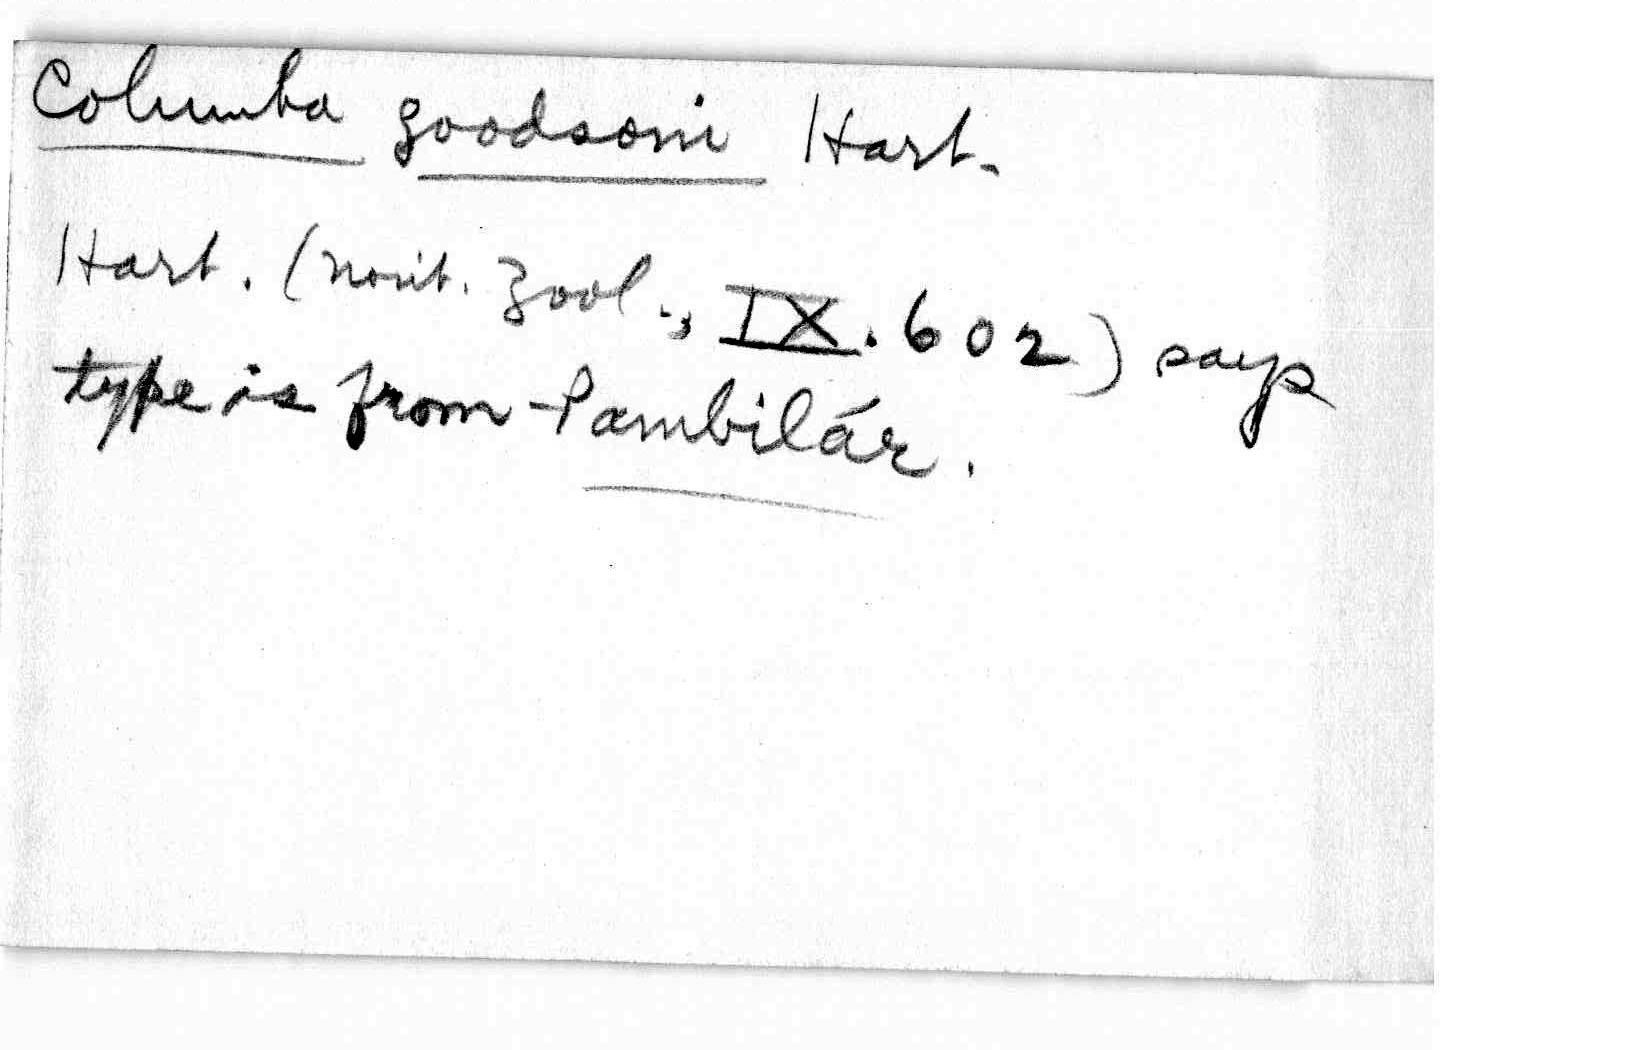 Columba goodsoni Hart.
Hart. (Novit. Zool., IX. 602) says
type is from Pambilár.